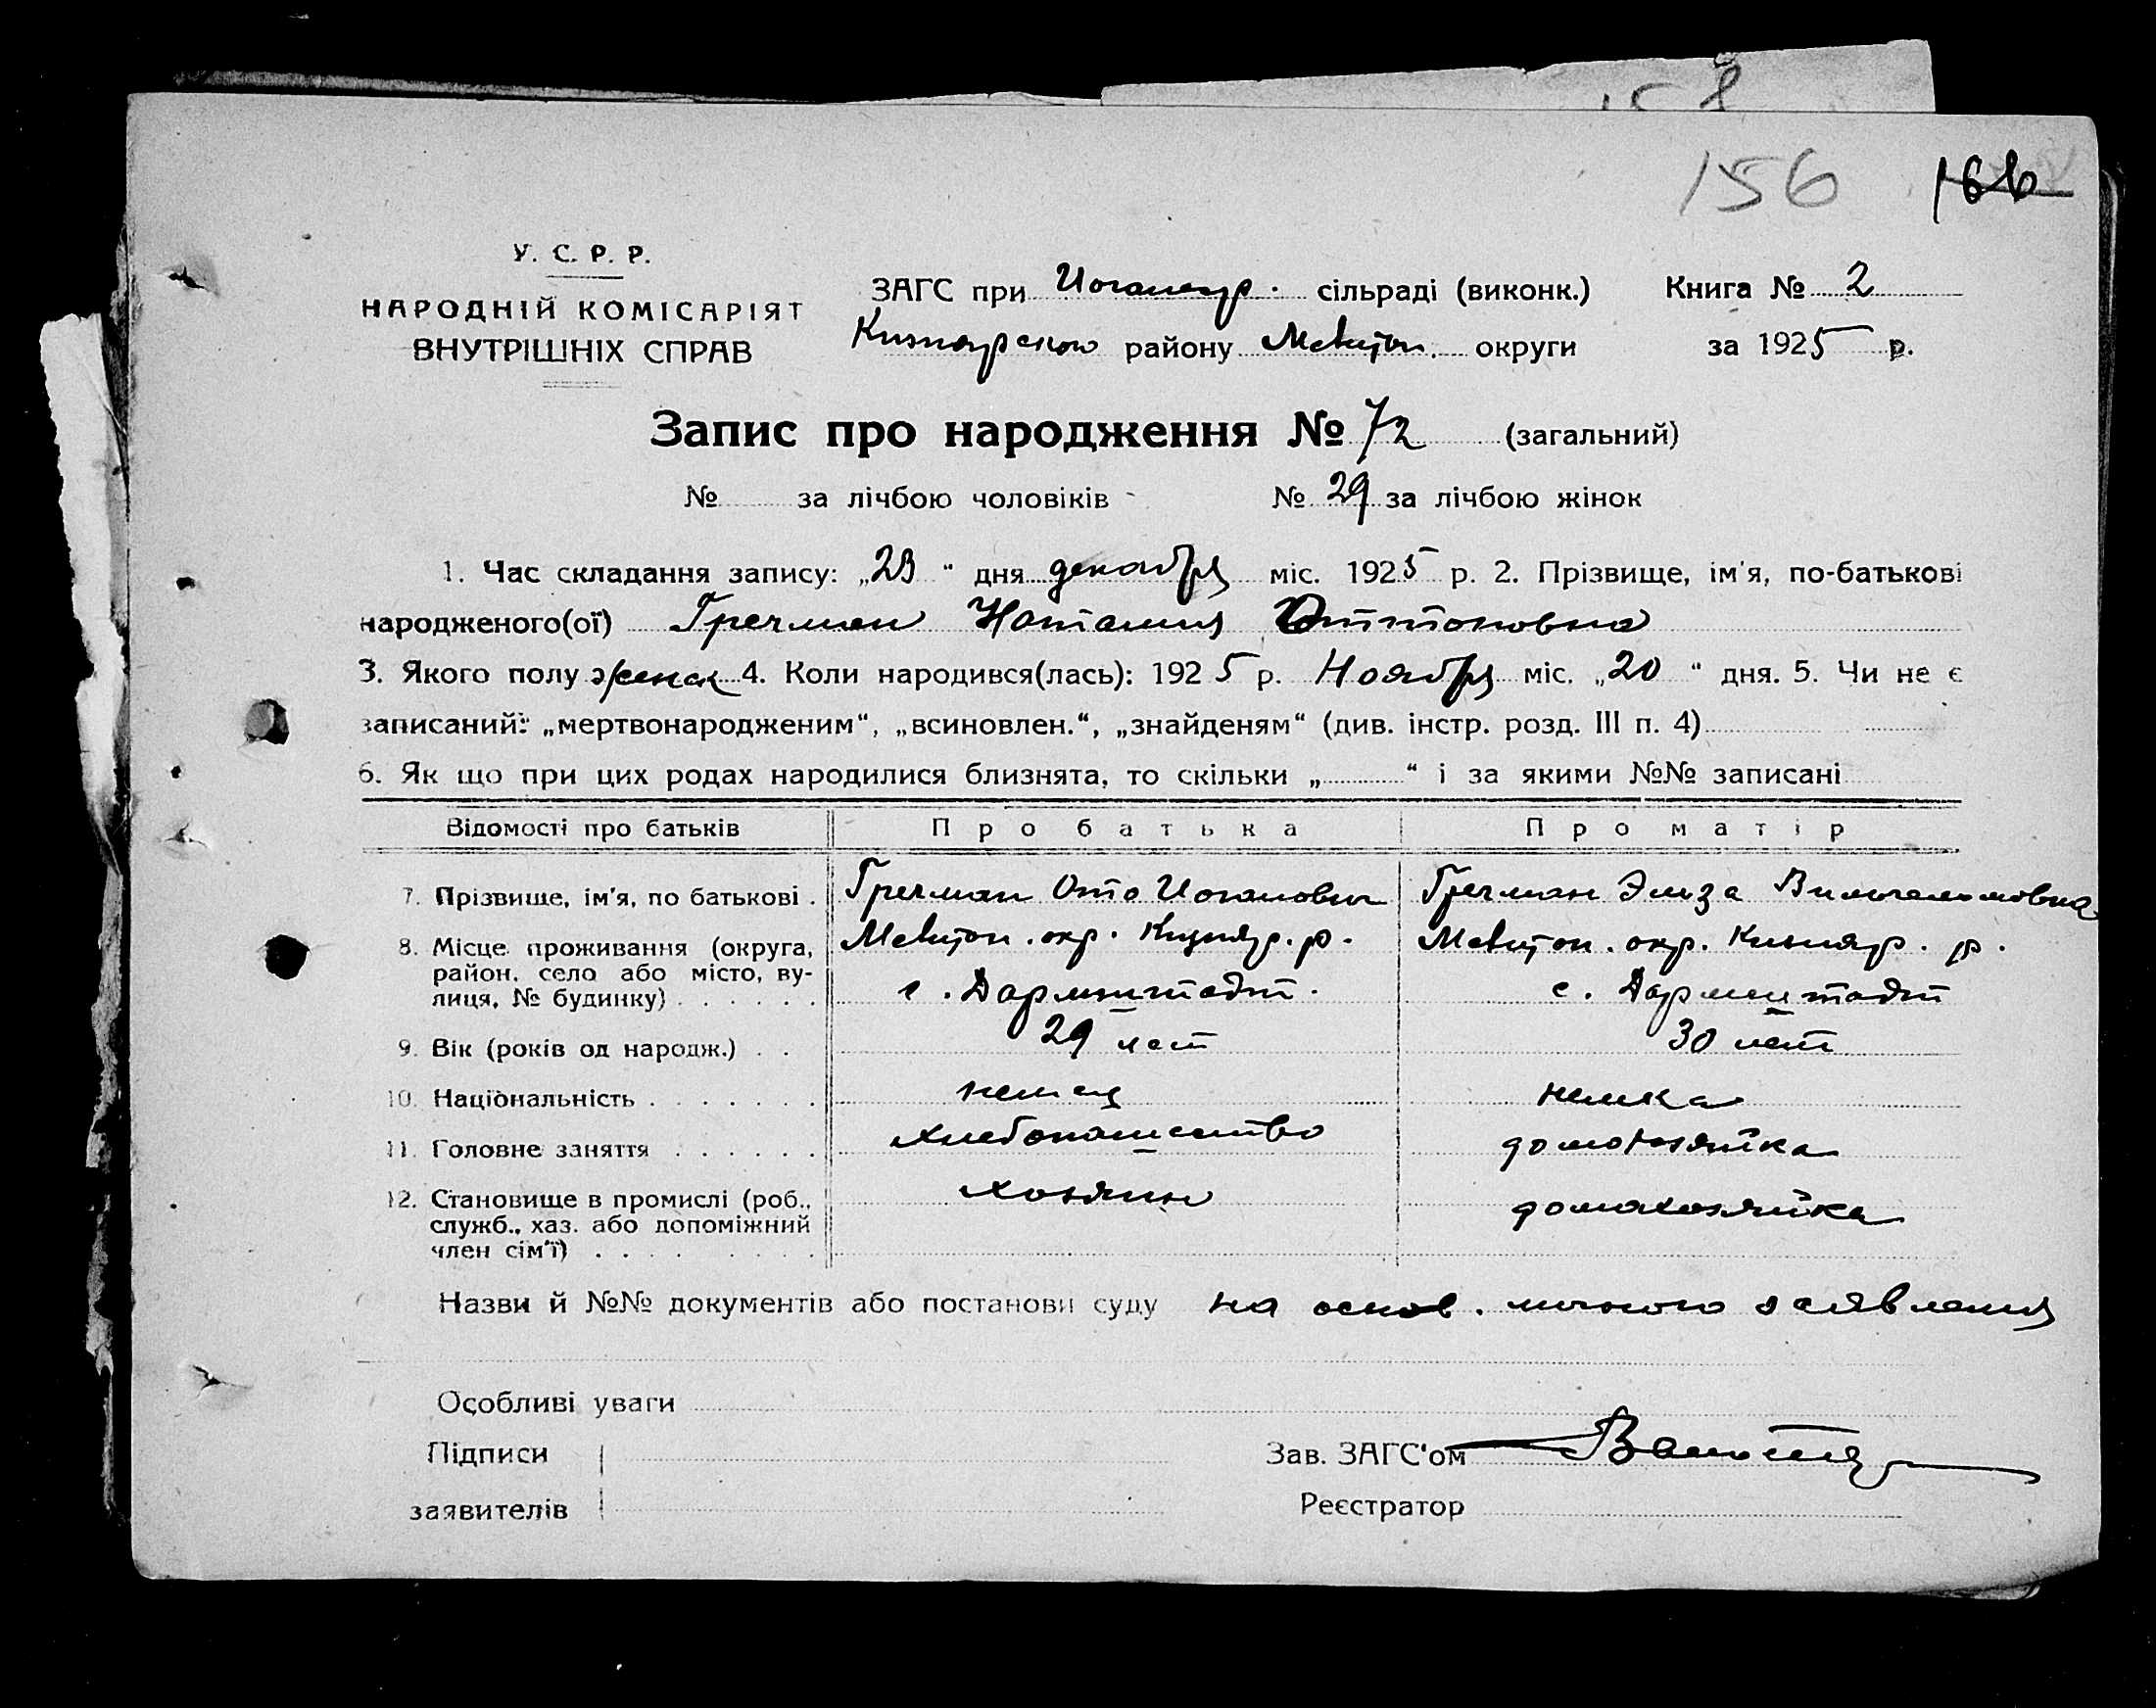 158
156 166
У. С. Р. Р.
НАРОДНІЙ КОМІСАРІЯТ
ВНУТРІШНІХ СПРАВ
ЗАГС при Иоганеср. сільраді (виконк.) Книга № 2
Кизиярского району Мелитоп. округи за 1925 р.
Запис про народження № 72 (загальний)
№ за лічбою чоловіків № 29 за лічбою жінок
1. Час складання запису: „23“ дня декабря міс. 1925 р. 2. Прізвище, ім'я, по-батькові
народженого(ої) Гречман Наталия Оттоновна
3. Якого полу женск 4. Коли народився(лась): 1925 р. Ноября міс. „20“ дня. 5. Чи не є
записаний: „мертвонародженим“, „всиновлен.“, „знайденям“ (див. інстр. розд. III п. 4)
6. Як що при цих родах народилися близнята, то скільки „ “ і за якими №№ записані
Відомості про батьків Про батька Про матір
7. Прізвище, ім'я, по батькові . Гречман Отто Иоганович Гречман Элиза Вильгельмовна
8. Місце проживання (округа, район, село або місто, вулиця, № будинку) . . . . . . Мелитоп. окр. Кизияр. р. с. Дармштадт. Мелитоп. окр. Кизияр. р. с. Дармштадт
9. Вік (років од народж.) . . 29 лет 30 лет
10. Національність . . . . . . . немец немка
11. Головне заняття . . . . . . хлебопашество домохозяйка
12. Становище в промислі (роб., служб., хаз. або допоміжний член сім'ї) . . . . . . . хозяин домохозяйка
Назви й №№ документів або постанови суду на основ. личного заявления
Особливі уваги
Підписи
заявителів
Зав. ЗАГС'ом
Реєстратор